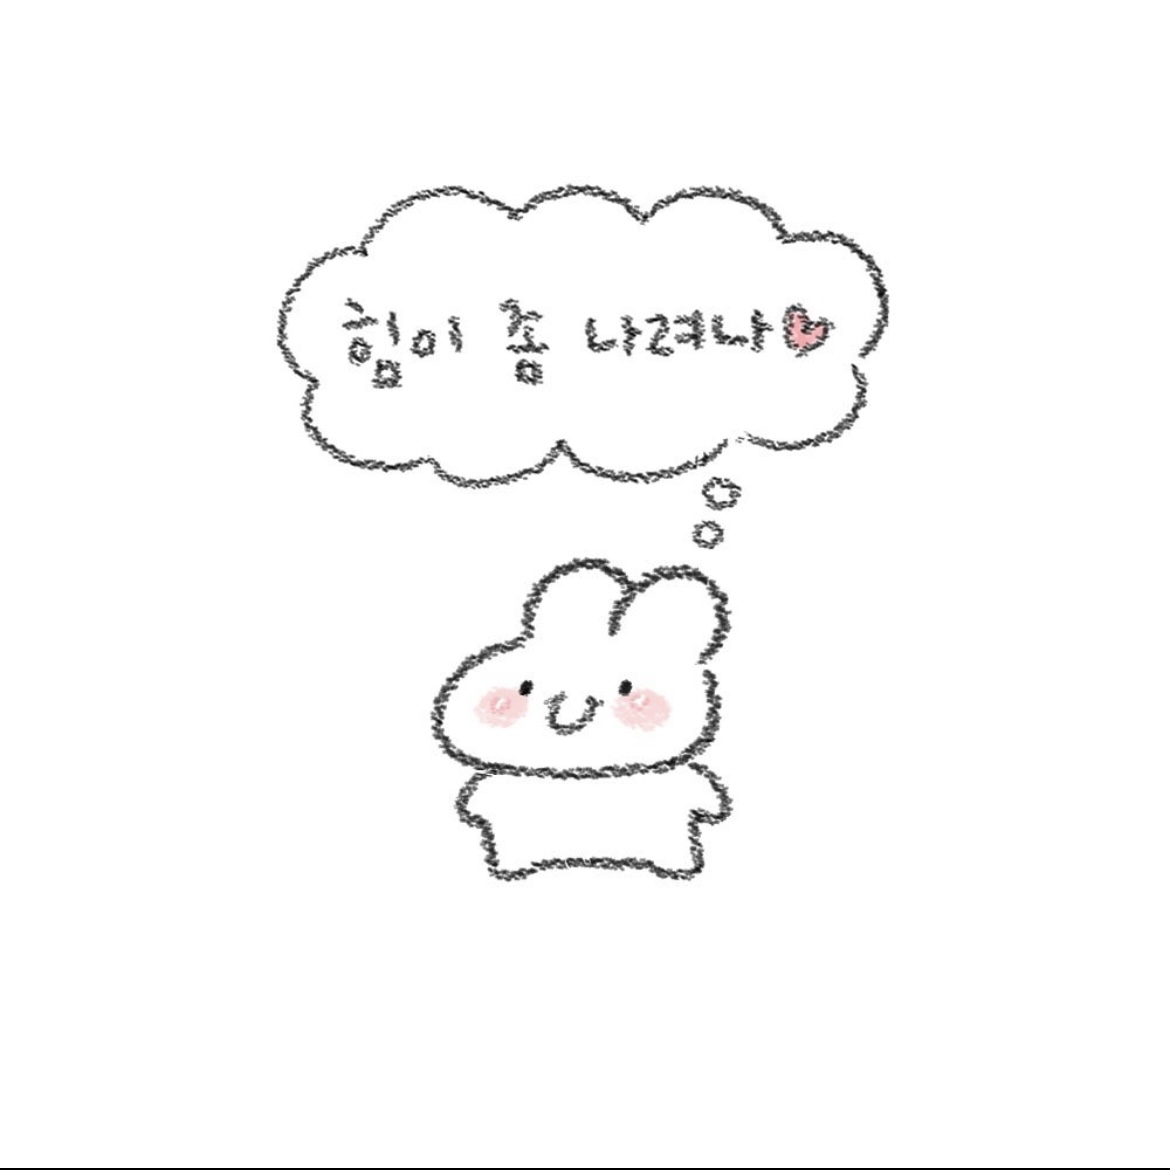 힘이 좀 나려나♥